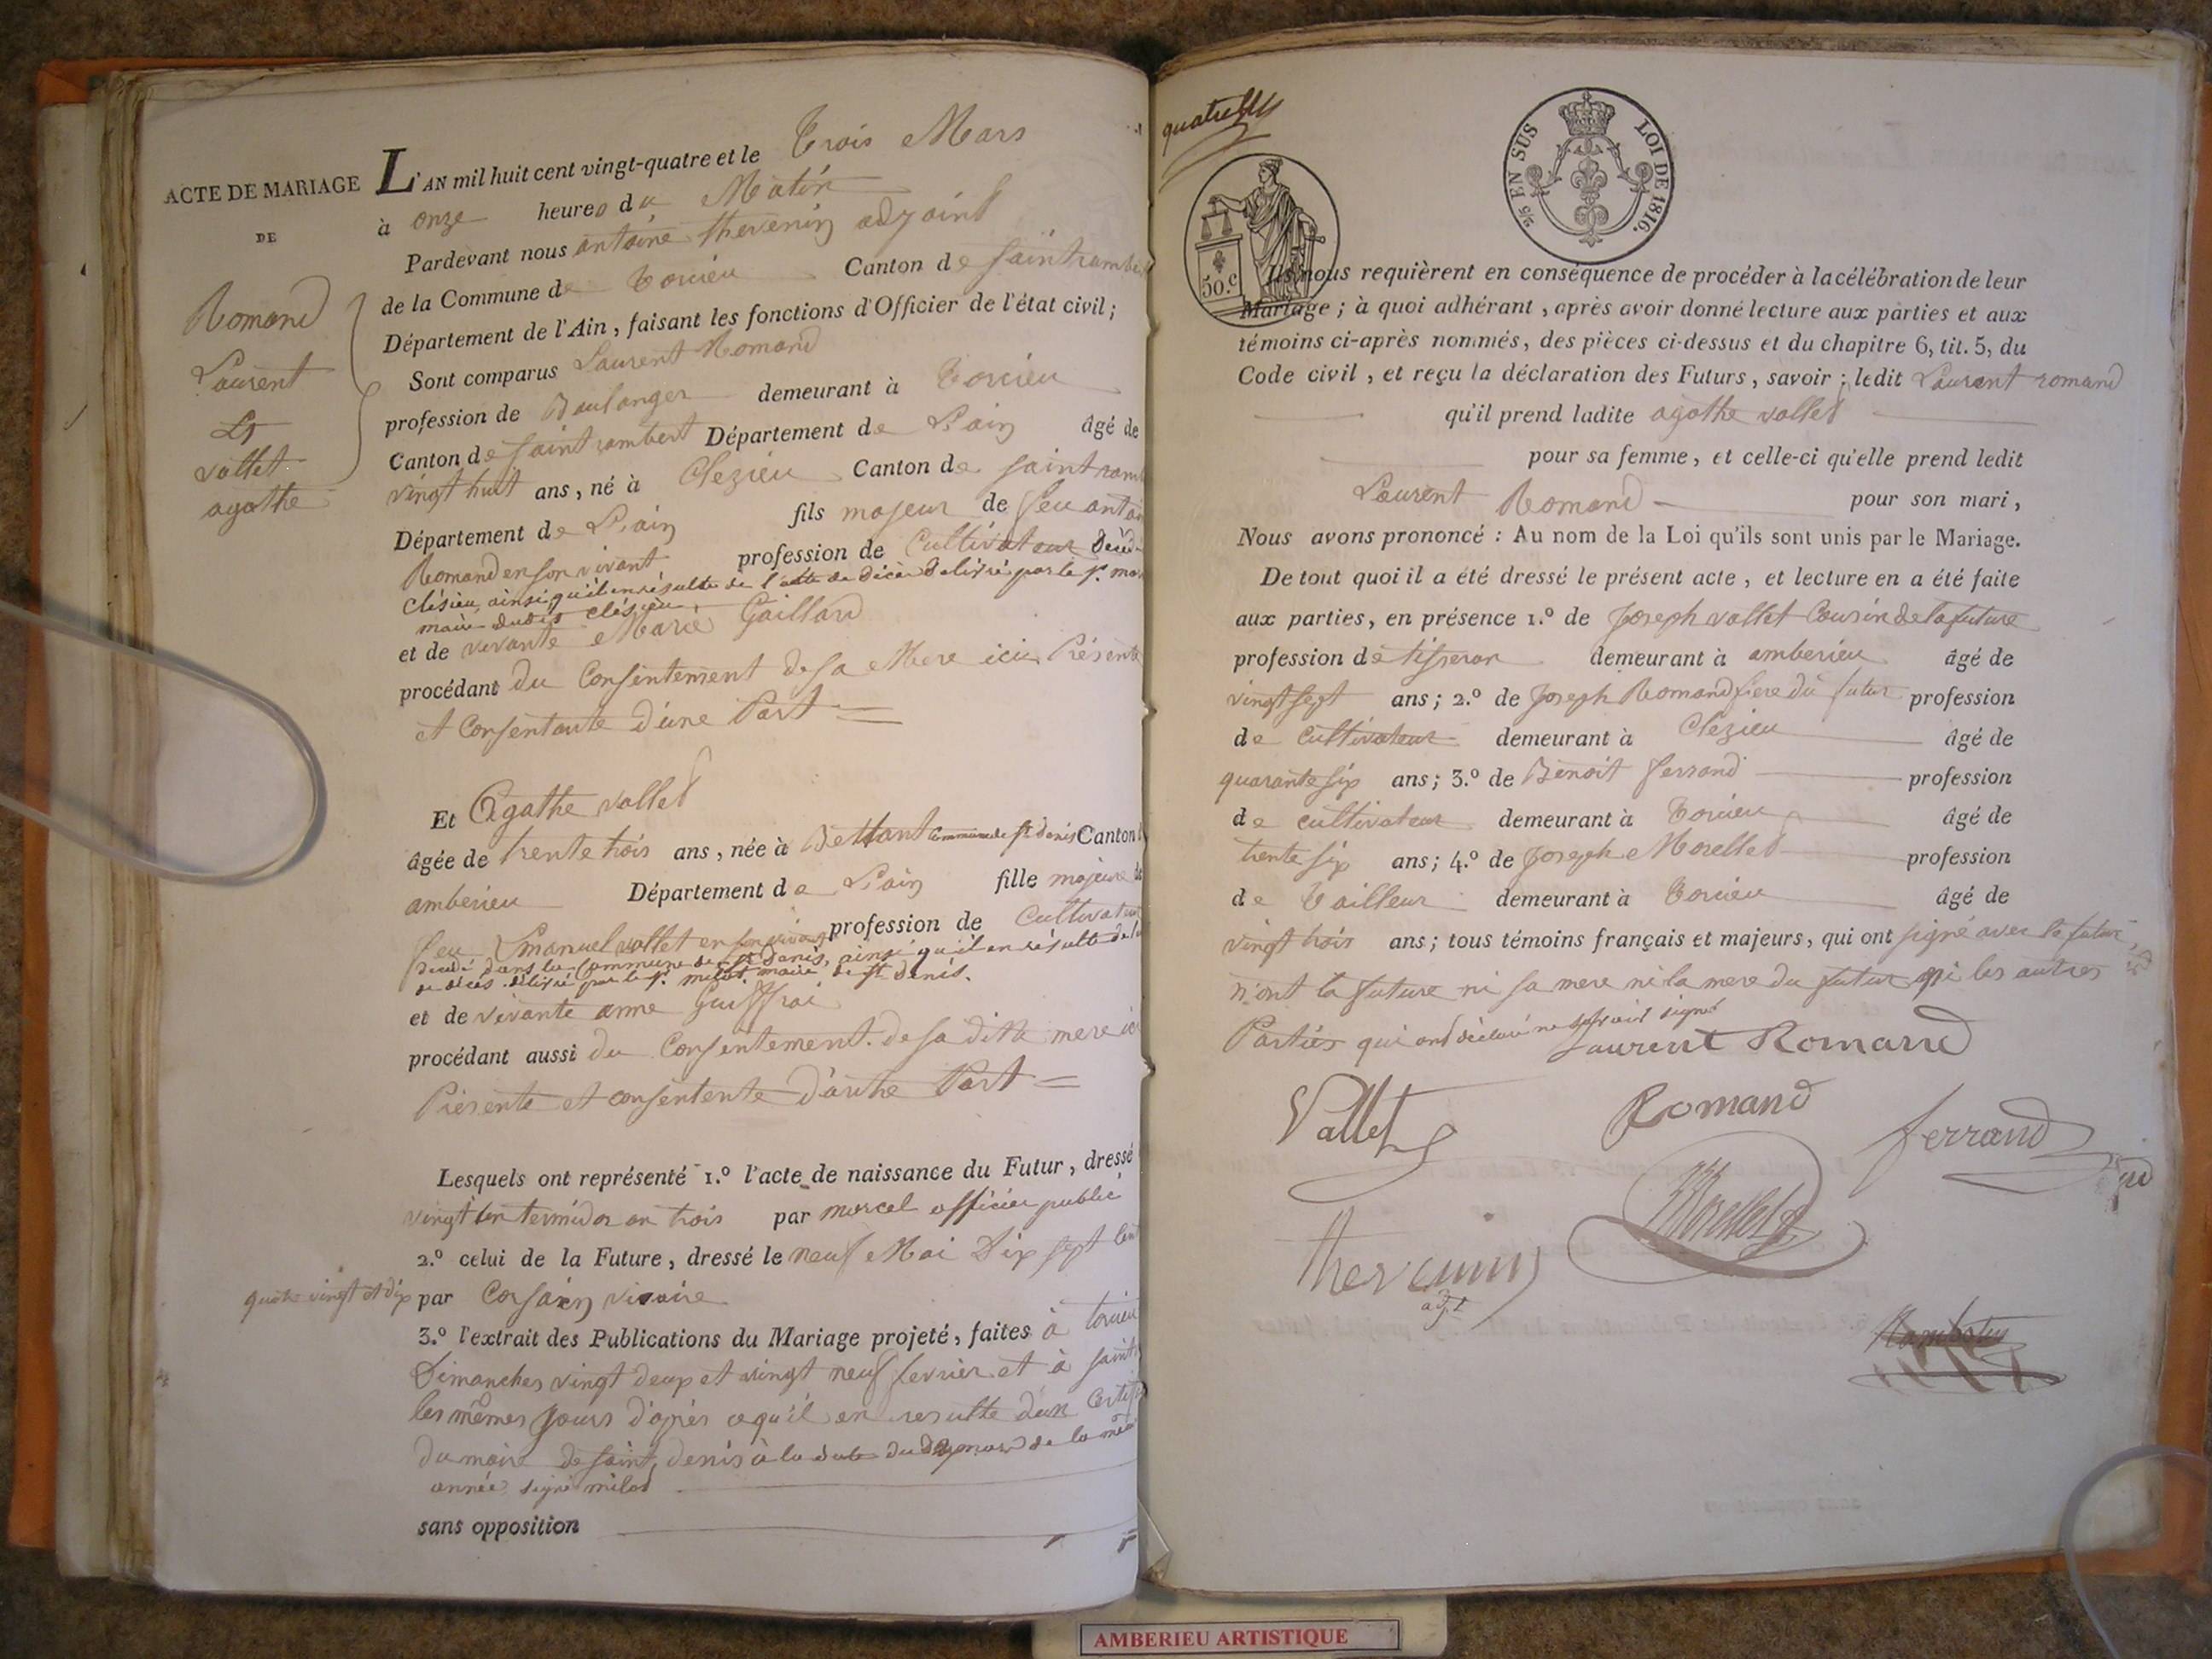 ACTE DE MARIAGE
DE
Romand
Laurent
Et
vallet
agathe
L'AN mil huit cent vingt-quatre et le Trois Mars
à onze heures du Matin
Pardevant nous antoine thevenin adjoint
de la Commune de Torcieu Canton de saint rambe
Département de l'Ain, faisant les fonctions d'Officier de l'état civil;
Sont comparus Laurent Romand
profession de Boulanger demeurant à Torcieu
Canton de saint rambert Département de L'ain âgé de
vingt huit ans, né à Clezieu Canton de saint ramb
Département de L'ain fils majeur de feu antoi
Romand en son vivant profession de Cultivateur décéd
Clésieu, ainsi qu'il en résulte de l'acte de décès délivré par le Sr. mar
maire dudit Clésieu
et de vivante Marie Gaillard
procédant du Consentement de sa Mere ici Présente
et Consentante d'une Part =
Et Agathe vallet
âgée de trente trois ans, née à Bettant Commune de St. denis Canton d
amberieu Département de L'ain fille majeure de
feu Emanuel vallet en son vivant profession de Cultivateur
décédé dans la Commune de St. Denis, ainsi qu'il en résulte de l'a
de décès délivré par le Sr. milet maire de St. denis.
et de vivante anne Guiffrai
procédant aussi du Consentement de sa ditte mere ici
Présente et consentente d'autre Part =
Lesquels ont représenté 1.º l'acte de naissance du Futur, dressé
vingt un termidor an trois par marcel officier public
2.º celui de la Future, dressé le neuf Mai Dix sept Cent
quatre vingt et dix par Corsain vicaire
3.º l'extrait des Publications du Mariage projeté, faites à torcieu
Dimanches vingt deux et vingt neuf fevrier et à saint
les mêmes jours d'après ce qu'il en resulte d'un Certif
du maire de saint denis à la date du mars de la mê
année signé milet
sans opposition
quatre
50.c
5/3 EN SUS LOI DE 1816.
Ils nous requièrent en conséquence de procéder à la célébration de leur
Mariage; à quoi adhérant, après avoir donné lecture aux parties et aux
témoins ci-après nommés, des pièces ci-dessus et du chapitre 6, tit. 5, du
Code civil, et reçu la déclaration des Futurs, savoir: ledit Laurent romand
qu'il prend ladite agathe vallet
pour sa femme, et celle-ci qu'elle prend ledit
Laurent Romand pour son mari,
Nous avons prononcé: Au nom de la Loi qu'ils sont unis par le Mariage.
De tout quoi il a été dressé le présent acte, et lecture en a été faite
aux parties, en présence 1.º de Joseph vallet Cousin de la future
profession de tisseran demeurant à amberieu âgé de
vingt sept ans; 2.º de Joseph Romand frere du futur profession
de cultivateur demeurant à Clezieu âgé de
quarante six ans; 3.º de Benoit ferrand profession
de cultivateur demeurant à Torcieu âgé de
trente six ans; 4.º de Joseph Morellet profession
de Tailleur demeurant à Torcieu âgé de
vingt trois ans; tous témoins français et majeurs, qui ont signé avec le futur,
n'ont la future ni sa mere ni la mere du futur ni les autres
Parties qui ont déclaré ne savoir signé
Laurent Romand
Vallet Romand ferrand
thevenin Morellet
adjt
AMBERIEU ARTISTIQUE